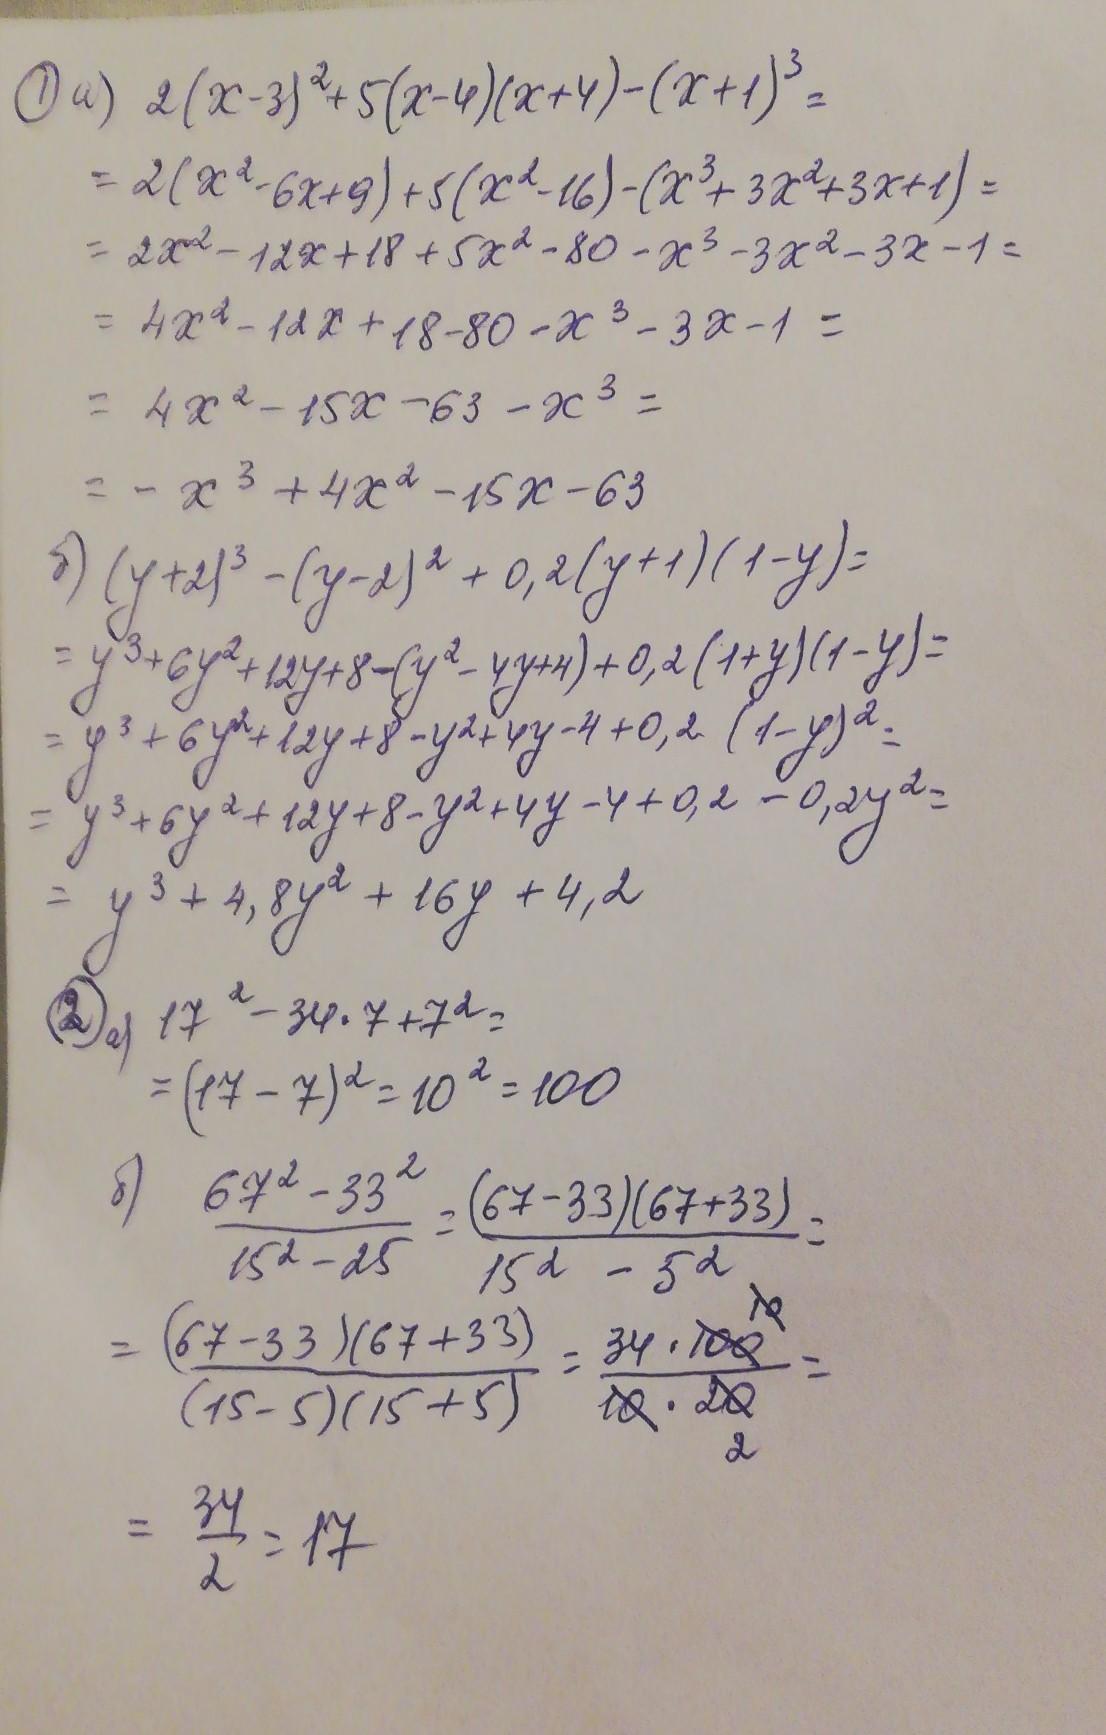 ① а) 2(x-3)²+5(x-4)(x+4)-(x+1)³=
=2(x²-6x+9)+5(x²-16)-(x³+3x²+3x+1)=
=2x²-12x+18+5x²-80-x³-3x²-3x-1=
=4x²-12x+18-80-x³-3x-1=
=4x²-15x-63-x³=
=-x³+4x²-15x-63
б) (y+2)³-(y-2)²+0,2(y+1)(1-y)=
=y³+6y²+12y+8-(y²-4y+4)+0,2(1+y)(1-y)=
=y³+6y²+12y+8-y²+4y-4+0,2·(1-y)²=
=y³+6y²+12y+8-y²+4y-4+0,2-0,2y²=
=y³+4,8y²+16y+4,2
② а) 17²-34·7+7²=
=(17-7)²=10²=100
б) (67²-33²)/(15²-25)=((67-33)(67+33))/(15²-5²)=
=((67-33)(67+33))/((15-5)(15+5))=(34·100 10)/(10·20 2)=
=34/2=17